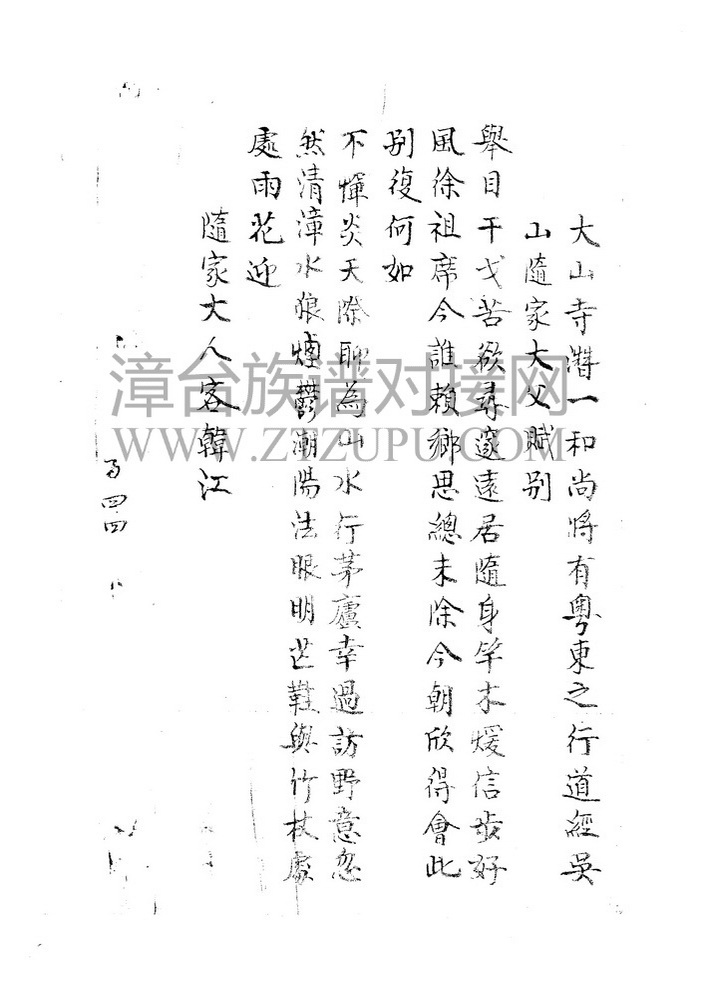 大山寺潛一和尚將有粵東之行道經吳
山隨家大父賦別
舉目干戈苦欲尋邃遠居隨身竿木煖信步好
風徐祖席今誰賴鄉思總未除今朝欣得會此
別復何如
不憚炎天際聊為山水行茅廬幸過訪野意忽
然清漳水狼煙鬱潮陽法眼明芒鞋與竹杖處
處雨花迎
隨家大人客韓江
四四
漳台族谱对接网
WWW.ZTZUPU.COM